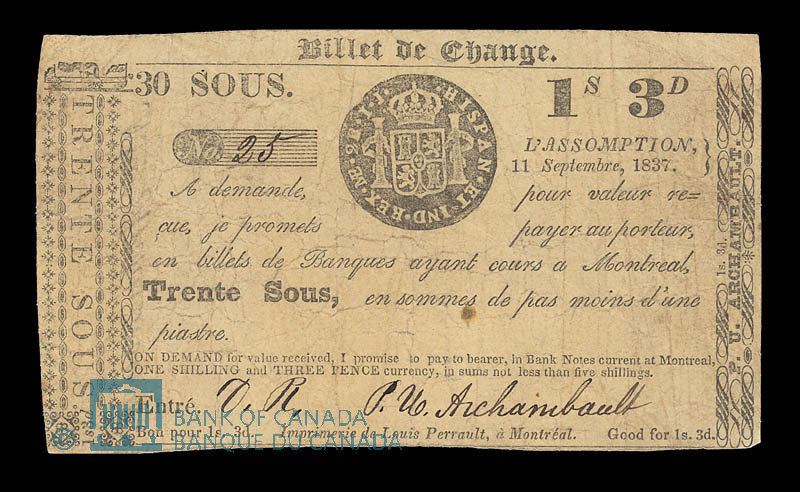 Billet de Change.
30 SOUS.
1S 3D
HISPAN·ET IND·REX·M·
No. 25
L'ASSOMPTION,
11 Septembre, 1837.
A demande, pour valeur re=
çue, je promets payer au porteur,
en billets de Banques ayant cours a Montreal,
Trente Sous, en sommes de pas moins d'une
piastre.
ON DEMAND for value received, I promise to pay to bearer, in Bank Notes current at Montreal,
ONE SHILLING and THREE PENCE currency, in sums not less than five shillings.
Entré D. R. P. U. Archambault
Bon pour 1s. 3d. Imprimerie de Louis Perrault, à Montréal. Good for 1s. 3d.
TRENTE SOUS
1s 3d
1s. 3d.
P. U. ARCHAMBAULT.
© BANK OF CANADA
BANQUE DU CANADA